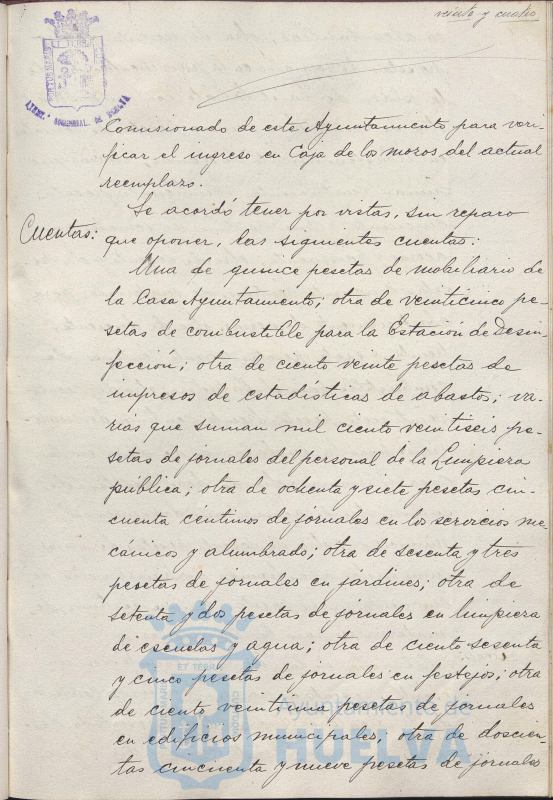 veinte y cuatro
Comisionado de este Ayuntamiento para veri-
ficar el ingreso en Caja de los mozos del actual
reemplazo.
Cuentas:
Se acordó tener por vistas, sin reparo
que oponer, las siguientes cuentas:
Una de quince pesetas de mobiliario de
la Casa Ayuntamiento; otra de veinticinco pe-
setas de combustible para la Estación de Desin-
fección; otra de ciento veinte pesetas de
impresos de estadísticas de abastos; va-
rias que suman mil ciento veintiseis pe-
setas de jornales del personal de la Limpieza
pública; otra de ochenta y siete pesetas cin-
cuenta céntimos de jornales en los servicios me-
cánicos y alumbrado; otra de sesenta y tres
pesetas de jornales en jardines; otra de
setenta y dos pesetas de jornales en limpieza
de escuelas y agua; otra de ciento sesenta
y cinco pesetas de jornales en festejos; otra
de ciento veintiuna pesetas de jornales
en edificios municipales; otra de doscien-
tas cincuenta y nueve pesetas de jornales
Ayuntamiento de
HUELVA